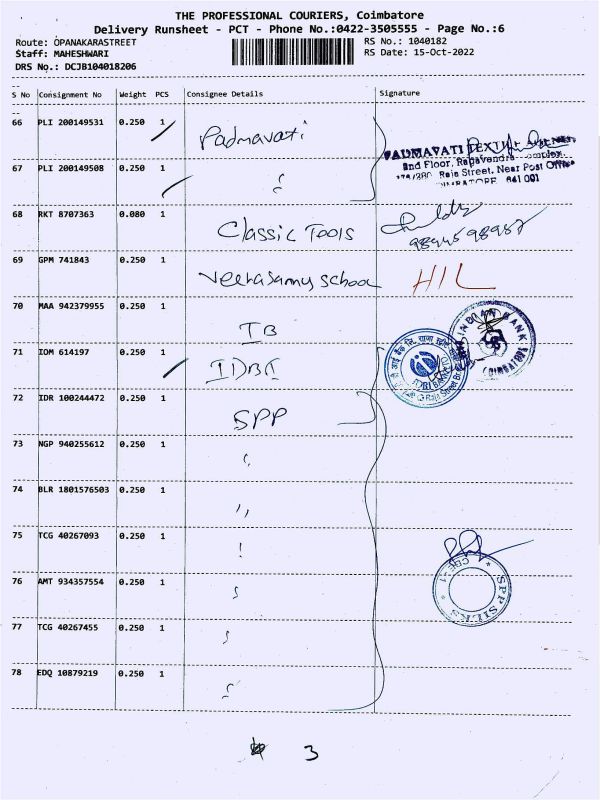 THE PROFESSIONAL COURIERS, Coimbatore
Delivery Runsheet - PCT - Phone No.:0422-3505555 - Page No.:6
Route: OPANAKARASTREET
RS No.: 1040182
Staff: MAHESHWARI
RS Date: 15-Oct-2022
DRS No.: DCJB104018206
S No Consignment No Weight PCS Consignee Details Signature
66 PLI 200149531 0.250 1 Padmavati
PADMAVATI TEXTILE
2nd Floor, Ragavendra
Raja Street, Near Post Office
641 001
67 PLI 200149508 0.250 1
68 RKT 8707363 0.080 1 Classic Tools
69 GPM 741843 0.250 1 Veerasamy school HIL
70 MAA 942379955 0.250 1 IB
INDIAN BANK
COIMBATORE
71 IOM 614197 0.250 1 IDBI
IDBI BANK
Raja Street Br.
72 IDR 100244472 0.250 1 SPP
73 NGP 940255612 0.250 1
74 BLR 1801576503 0.250 1 ,,
75 TCG 40267093 0.250 1
76 AMT 934357554 0.250 1
SPP SILKS
CBE-1
77 TCG 40267455 0.250 1
78 EDQ 10879219 0.250 1
3